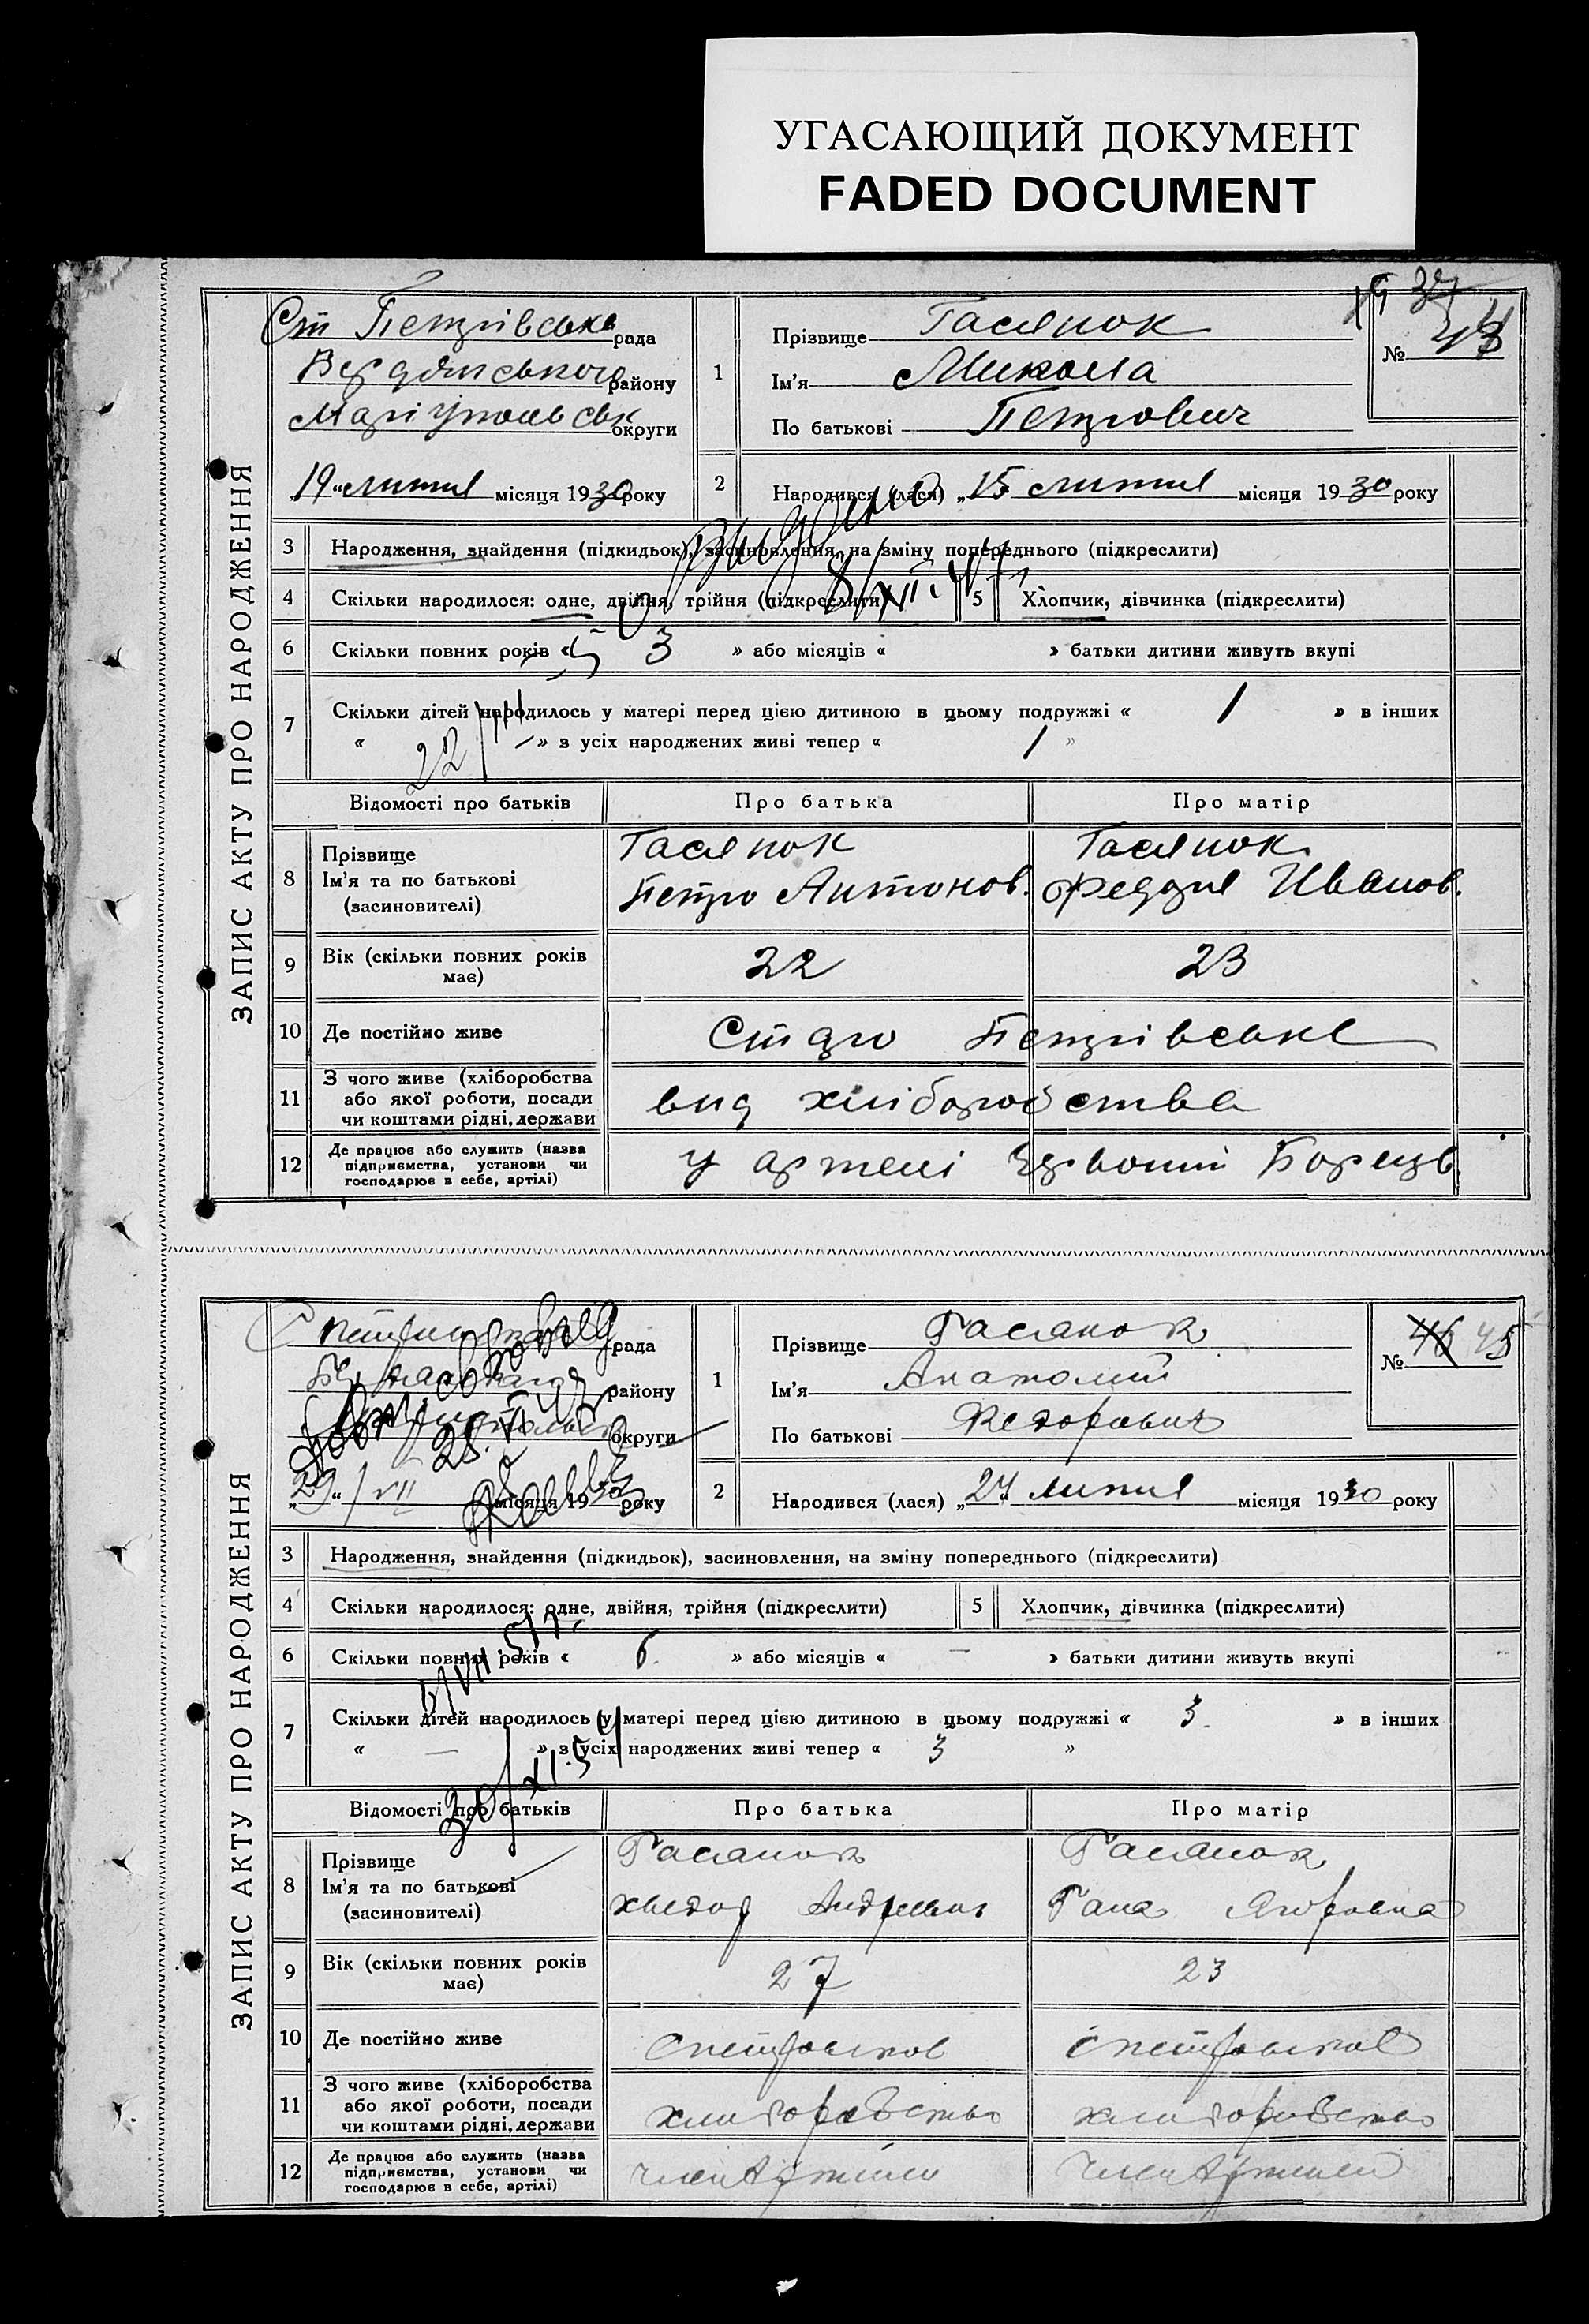 УГАСАЮЩИЙ ДОКУМЕНТ
FADED DOCUMENT
ЗАПИС АКТУ ПРО НАРОДЖЕННЯ
Ст Петрівська рада
Бердянського району
Маріупольськ округи
„19“ лютня місяця 1930 року
1
Прізвище Гасянок
Ім'я Микола
По батькові Петрович
№
2
Народився (лася) „15 лютня місяця 1930 року
видано
8/XII
3 Народження, знайдення (підкидьок), засиновлення, на зміну попереднього (підкреслити)
4 Скільки народилося: одне, двійня, трійня (підкреслити) 5 Хлопчик, дівчинка (підкреслити)
6 Скільки повних років « 3 » або місяців « » батьки дитини живуть вкупі
7 Скільки дітей народилось у матері перед цією дитиною в цьому подружжі « 1 » в інших
« » з усіх народжених живі тепер « 1 »
22/III
Відомості про батьків Про батька Про матір
8 Прізвище
Ім'я та по батькові
(засиновителі)
Гасянок
Петро Антонов.
Гасянок
Федора Иванов.
9 Вік (скільки повних років має) 22 23
10 Де постійно живе Старо Петрівське
11 З чого живе (хліборобства
або якої роботи, посади
чи коштами рідні, держави
від хліборобства
12 Де працює або служить (назва
підприємства, установи чи
господарює в себе, артілі)
у артелі Червоний Борець.
ЗАПИС АКТУ ПРО НАРОДЖЕННЯ
рада
району
округи
„29“/VII місяця 1930 року
1
Прізвище Гасанок
Ім'я Анатолий
По батькові Федорович
№ 46 45
2
Народився (лася) „24“ липня місяця 1930 року
3 Народження, знайдення (підкидьок), засиновлення, на зміну попереднього (підкреслити)
4 Скільки народилося: одне, двійня, трійня (підкреслити) 5 Хлопчик, дівчинка (підкреслити)
6 Скільки повних років « 6 » або місяців « — » батьки дитини живуть вкупі
7 Скільки дітей народилось у матері перед цією дитиною в цьому подружжі « 3 » в інших
« — » з усіх народжених живі тепер « 3 »
Відомості про батьків Про батька Про матір
8 Прізвище
Ім'я та по батькові
(засиновителі)
Гасанок
Хведор Андреевич
Гасанок
Гана Ягоровна
9 Вік (скільки повних років має) 27 23
10 Де постійно живе
11 З чого живе (хліборобства
або якої роботи, посади
чи коштами рідні, держави
хлиборобство хлиборобство
12 Де працює або служить (назва
підприємства, установи чи
господарює в себе, артілі)
член Артили член Артили